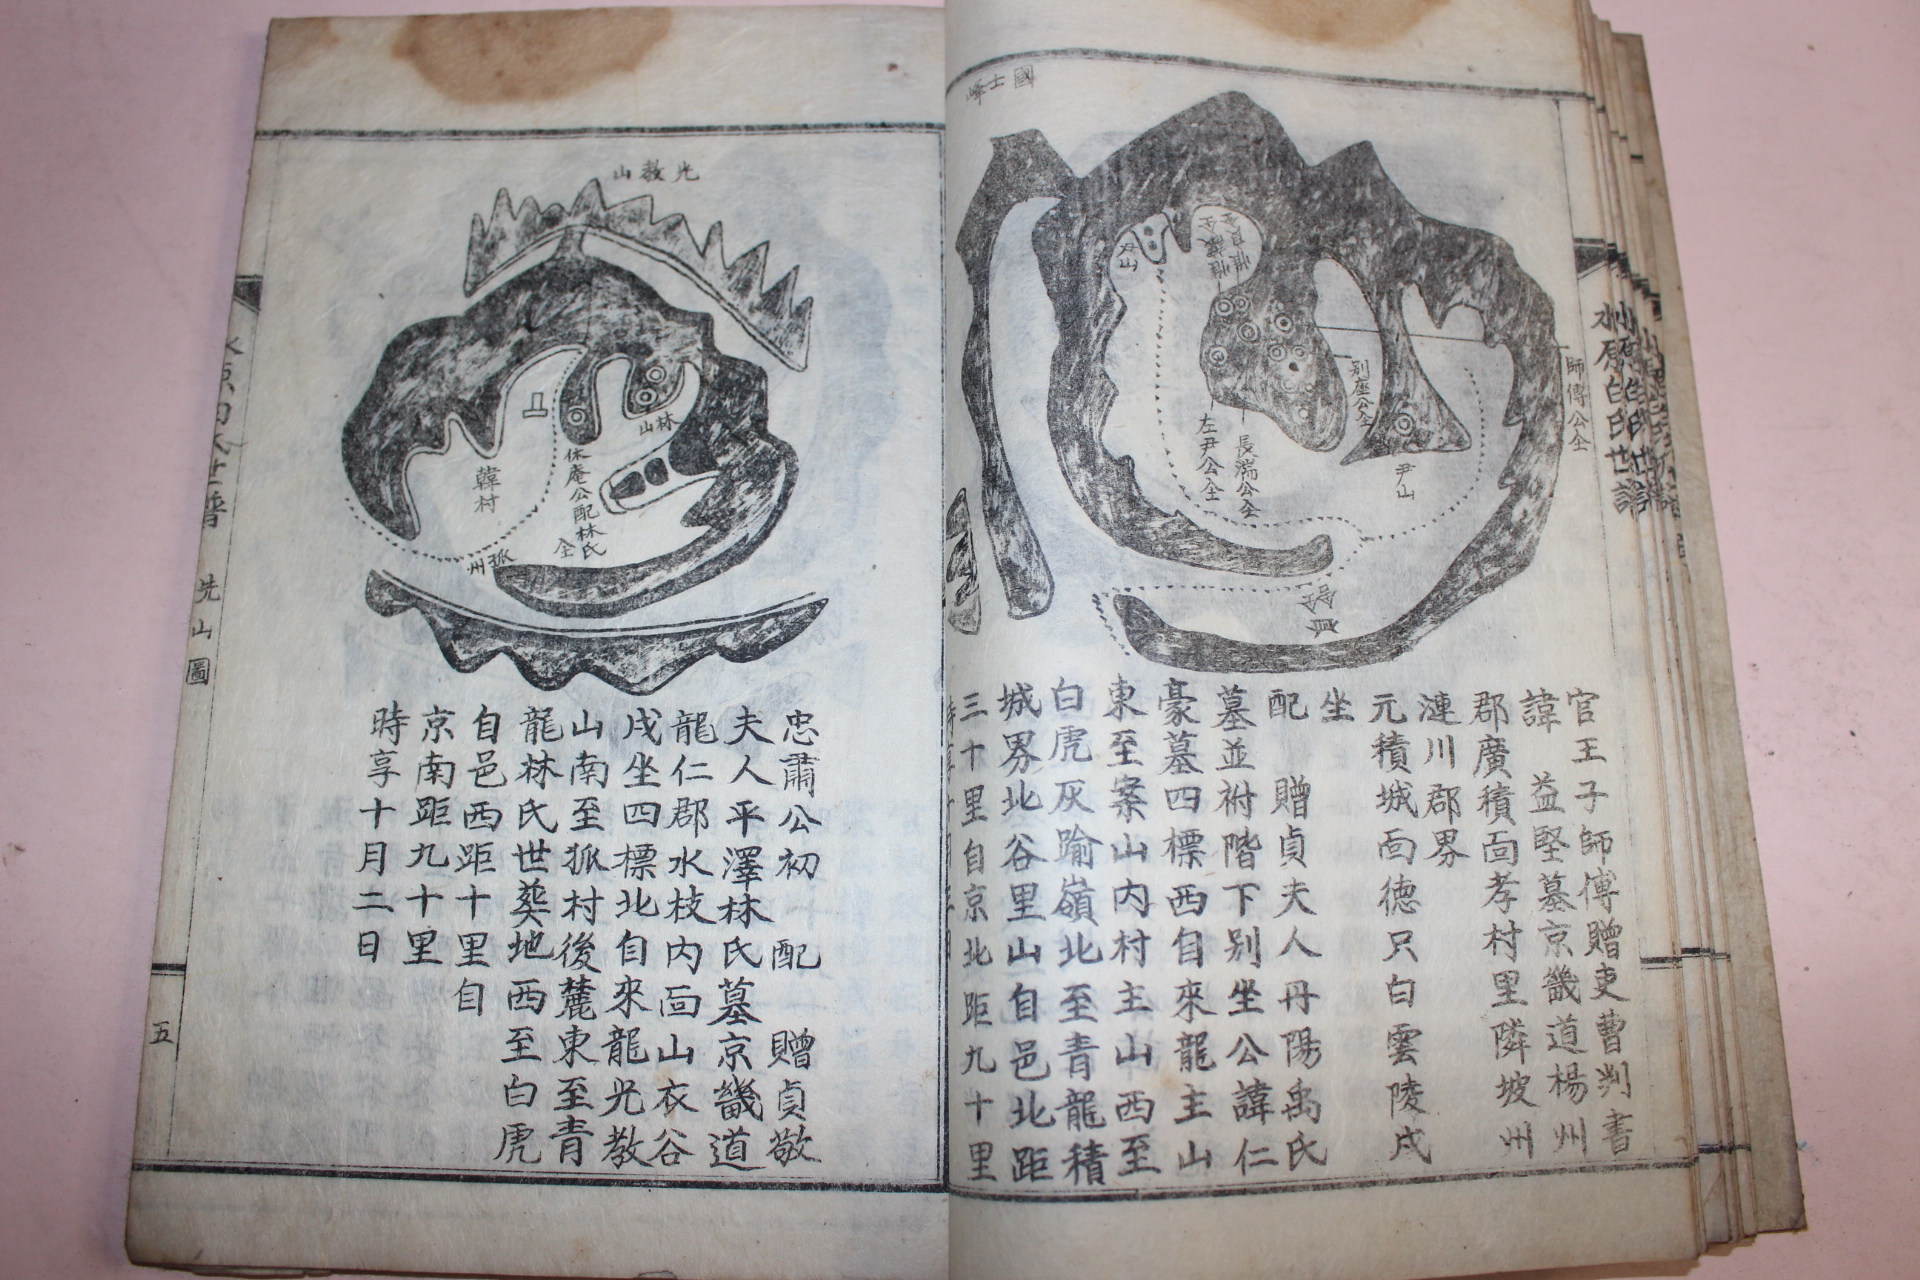 國士峰
師傅公仝
別座公仝
長湍公仝
左尹公仝
尹山
官王子師傅贈吏曹判書
諱 益堅墓京畿道楊州
郡廣積面孝村里隣坡州
漣川郡界
元積城面德只白雲陵戌
坐
配 贈貞夫人丹陽禹氏
墓並祔階下別坐公諱仁
豪墓四標西自來龍主山
東至案山內村主山西至
白虎灰踰嶺北至青龍積
城界北谷里山自邑北距
三十里自京北距九十里
水原白氏世譜
光教山
林山
韓村
休庵公配林氏
仝
狐州
忠肅公初 配 贈貞敬
夫人平澤林氏墓京畿道
龍仁郡水枝內面山衣谷
戌坐四標北自來龍光教
山南至狐村後麓東至青
龍林氏世葬地西至白虎
自邑西距十里自
京南距九十里
時享十月二日
水原白氏世譜
先山圖
五